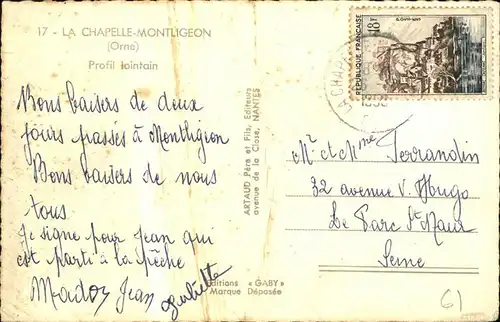 17 - LA CHAPELLE-MONTLIGEON
(Orne)
Profil lointain
Bons baisers de deux
jours passés à Montligion
Bons baisers de nous
tous
Je signe pour Jean qui
est parti à la pêche
Madoy Jean
Juliette
ARTAUD Père et Fils, Editeurs
avenue de la Close, NANTES
Editions « GABY »
Marque Déposée
RÉPUBLIQUE FRANÇAISE
18F
Mr et Mme Ferrandin
32 avenue V. Hugo
Le Parc St Maur
Seine
61